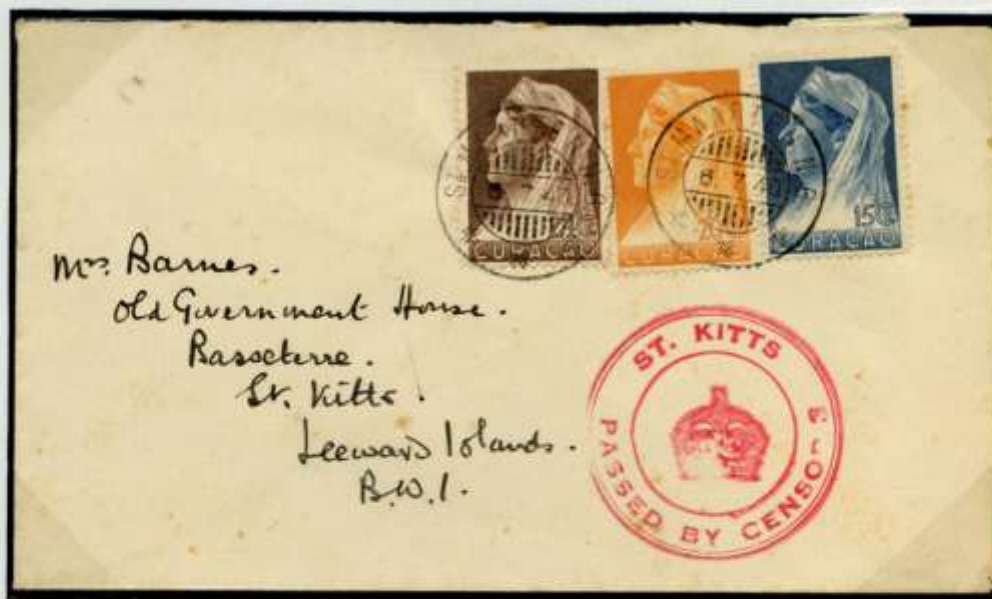 15c
CURAÇAO CURAÇAO CURAÇAO
Mrs. Barnes.
Old Government House.
Basseterre.
St. Kitts.
Leeward Islands.
B.W.I.
ST. KITTS
PASSED BY CENSOR